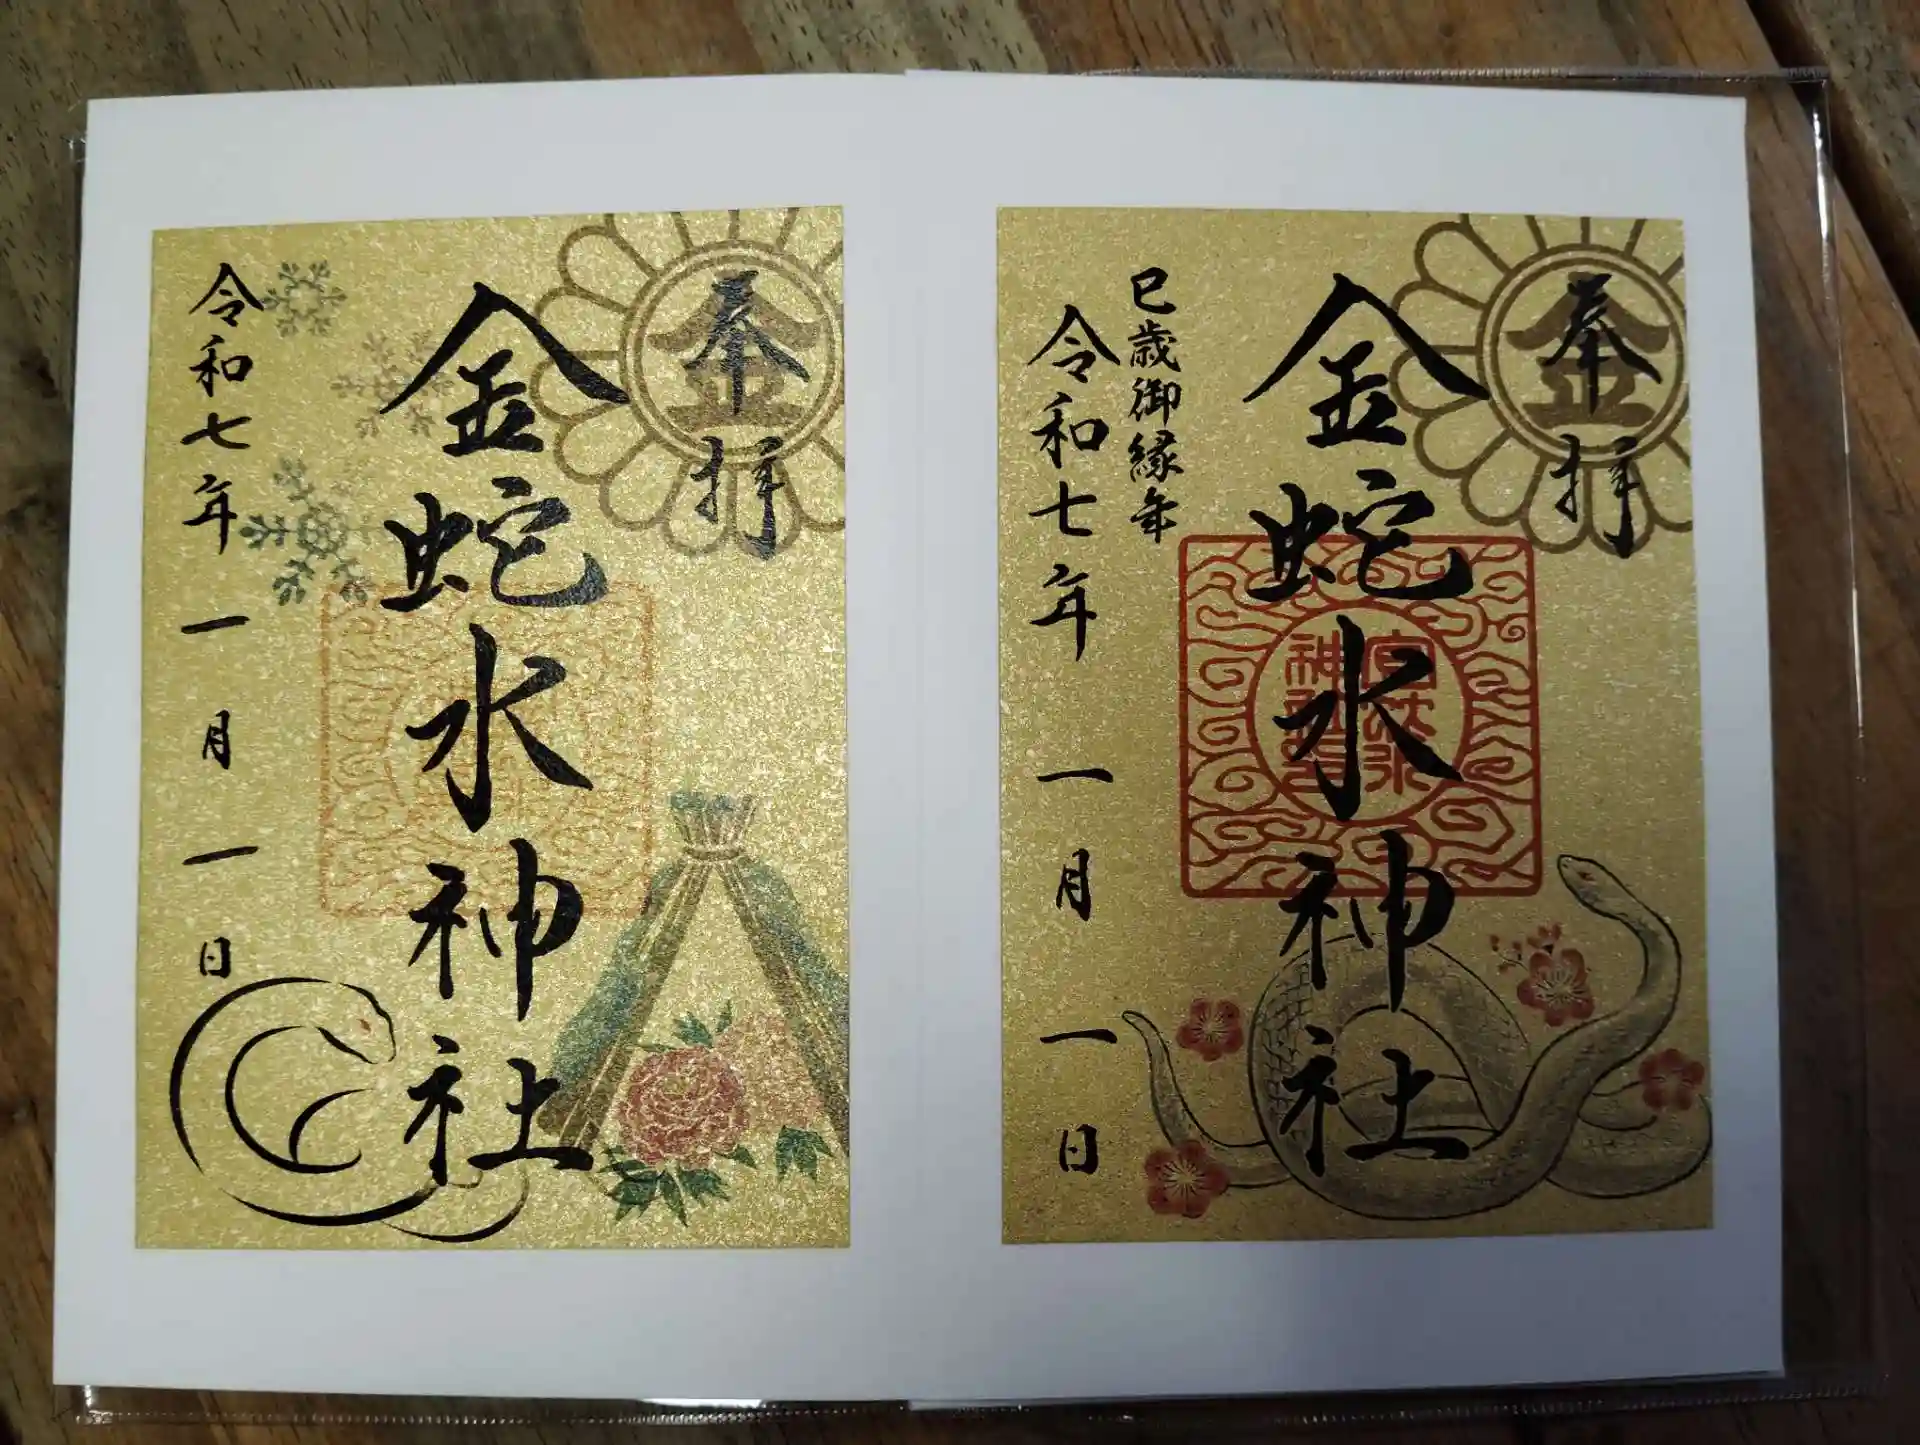 奉拝
金
巳歳御縁年
金蛇水神社
令和七年一月一日
奉拝
金
金蛇水神社
令和七年一月一日